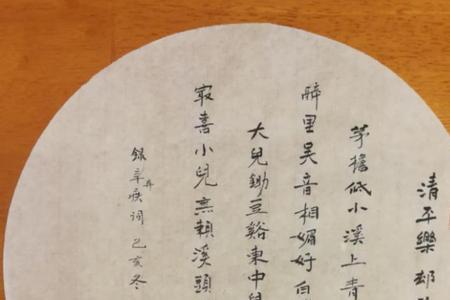 清平樂 邨
茅檐低小溪上青
醉里吴音相媚好白
大兒鋤豆谿東中兒
冣喜小兒無賴溪頭
録辛弃疾词 己亥冬